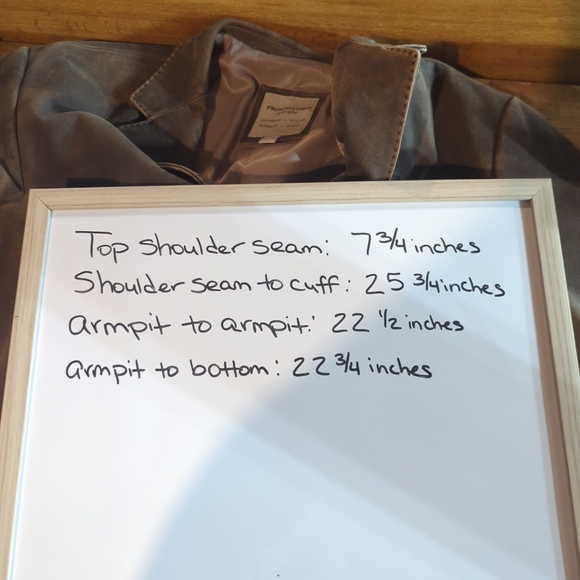 Top shoulder seam: 7 3/4 inches
Shoulder seam to cuff: 25 3/4 inches
armpit to armpit: 22 1/2 inches
armpit to bottom: 22 3/4 inches